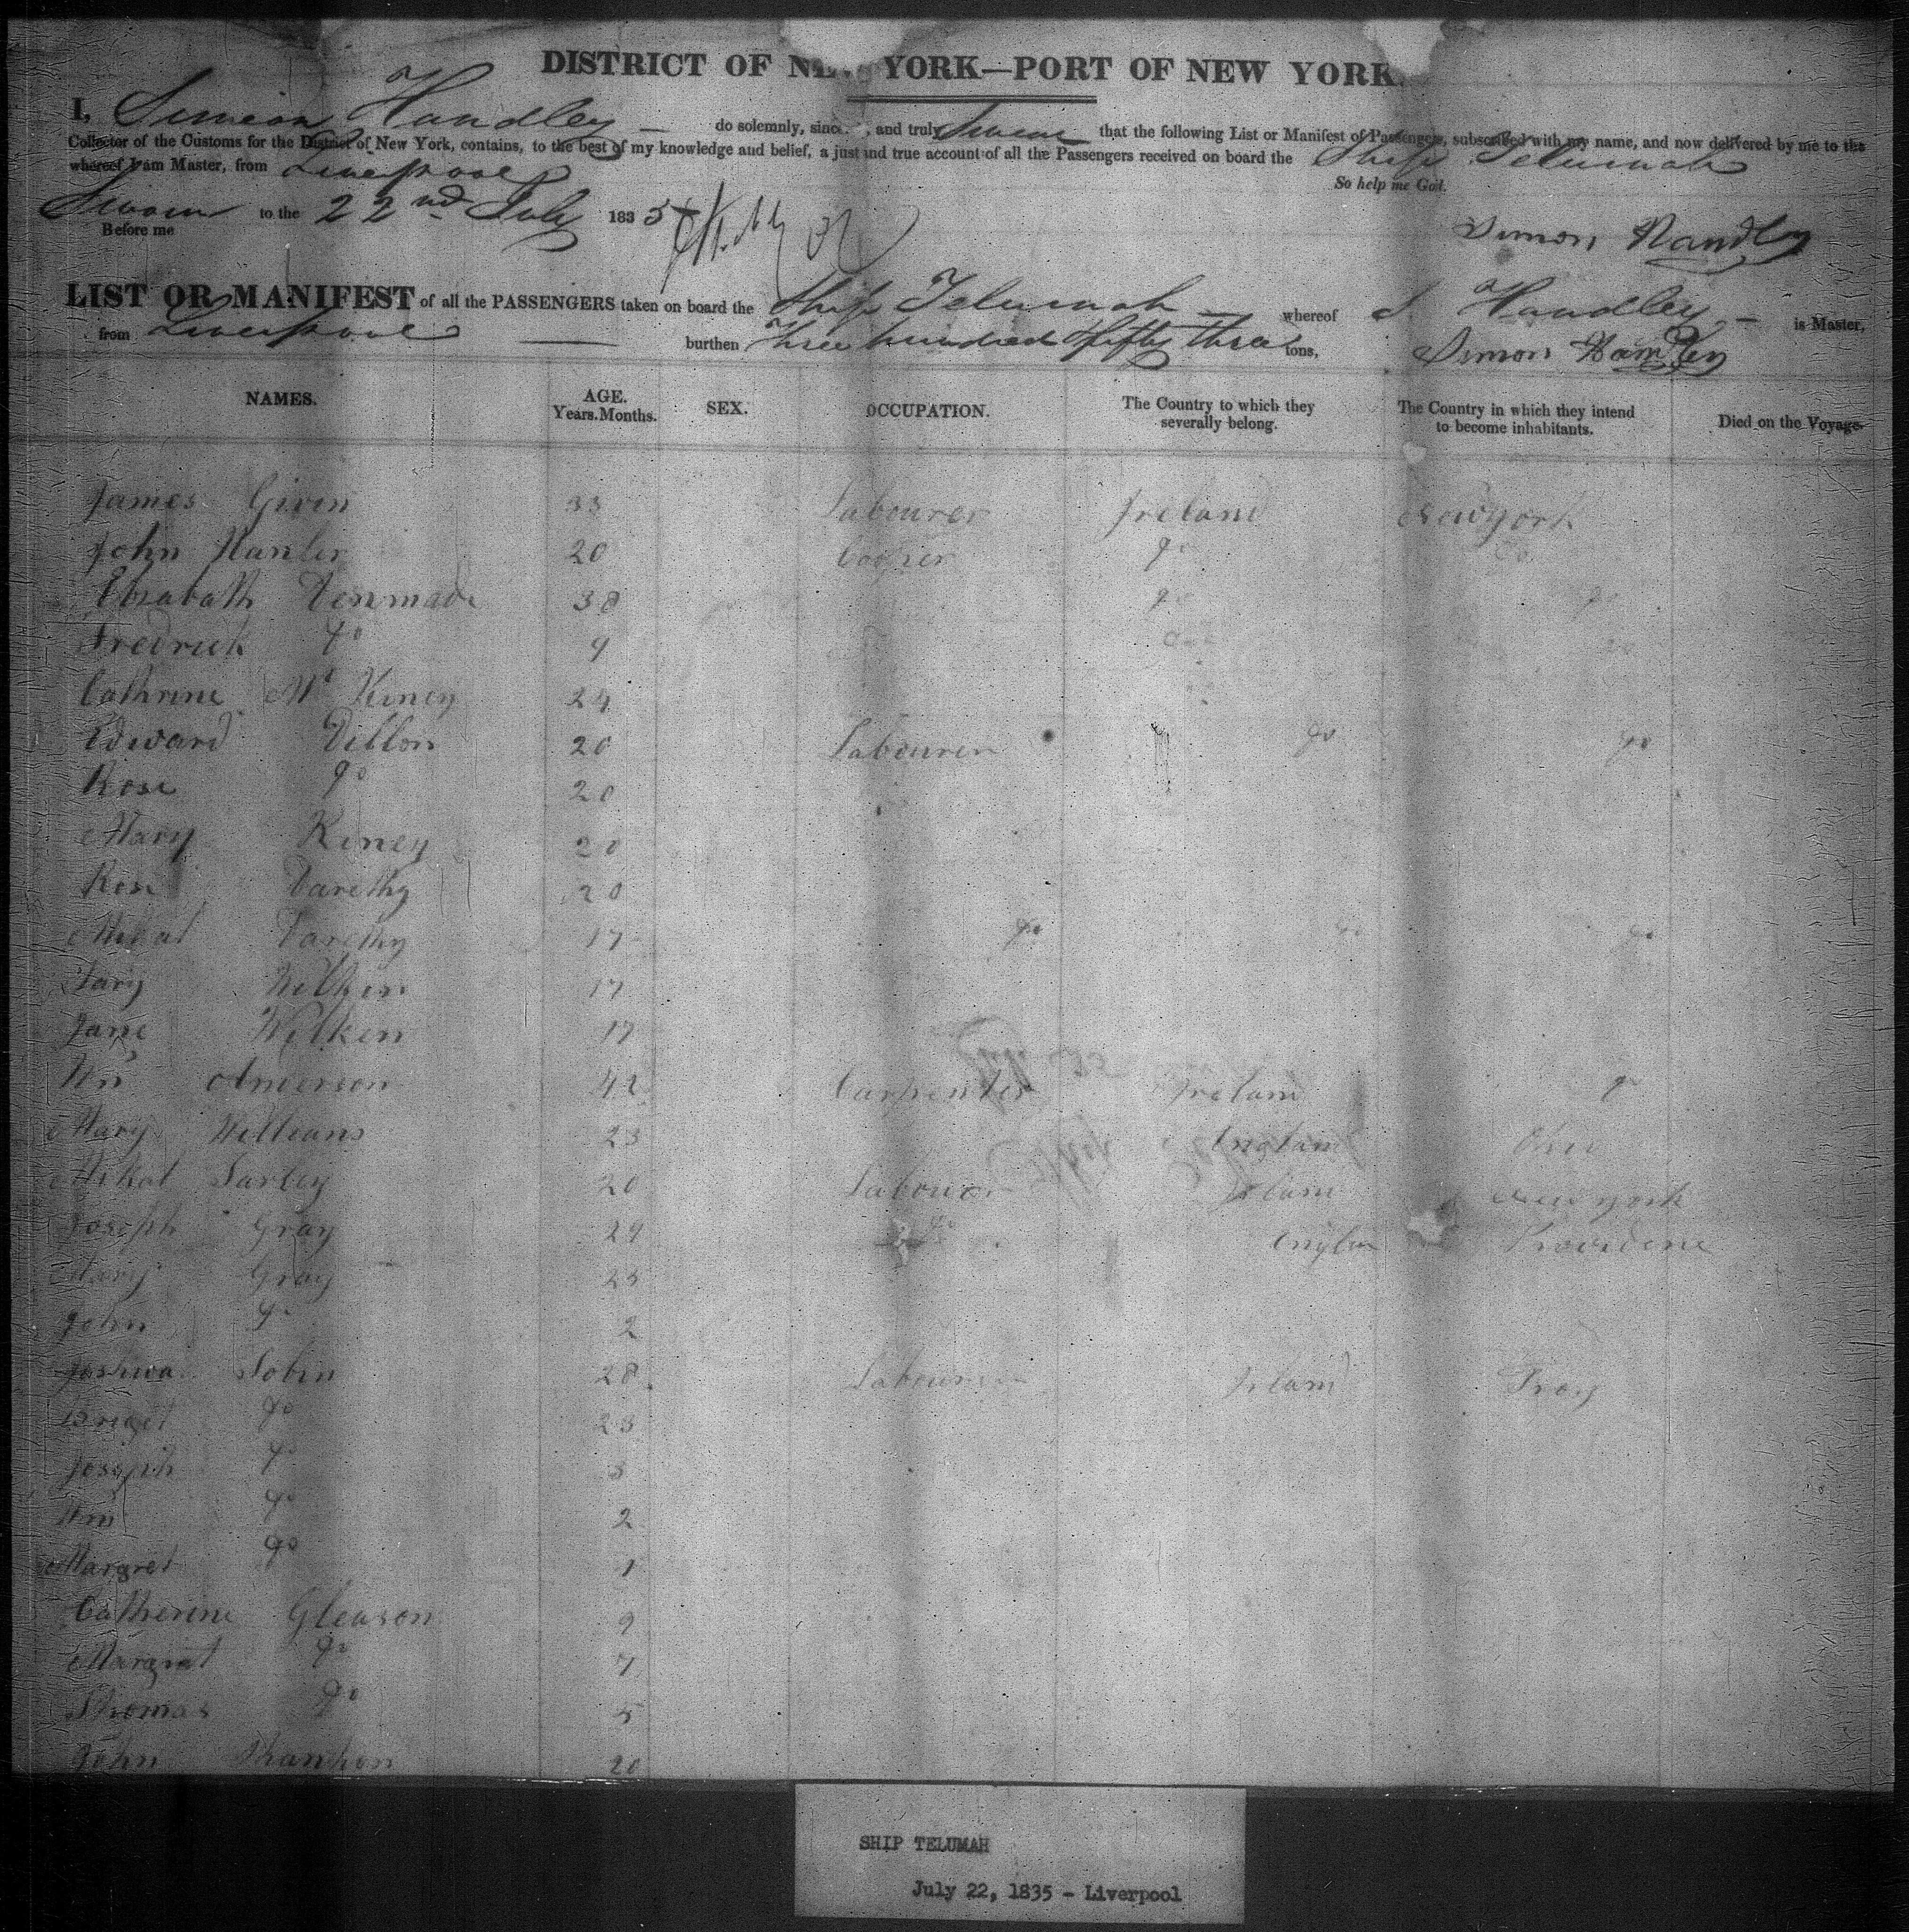 DISTRICT OF NEW YORK—PORT OF NEW YORK.
I, Simeon Handley do solemnly, sincerely, and truly Swear that the following List or Manifest of Passengers, subscribed with my name, and now delivered by me to the
Collector of the Customs for the District of New York, contains, to the best of my knowledge and belief, a just and true account of all the Passengers received on board the Ship Telumah
whereof I am Master, from Liverpool
So help me God.
Sworn to the 22nd July 1835
Before me
Simon Handley
LIST OR MANIFEST of all the PASSENGERS taken on board the Ship Telumah whereof S. Handley is Master,
from Liverpool burthen Three hundred & fifty three tons,
Simon Handley
NAMES. AGE. SEX. OCCUPATION. The Country to which they severally belong. The Country in which they intend to become inhabitants. Died on the Voyage.
Years. Months.
James Givin 33 Labourer Ireland New york
John Hanler 20 Cooper do do
38 do do
Fredrick do 9 do do
Cathrine Mc Kiney 24
Edward Dillon 20 Labourer do do
Rose do 20
Mary Kiney 20
Rose 20
17 do do do
Wilken 17
Jane Wilken 17
Wm Anderson 42 Carpenter Ireland do
Mary Williams 23 England Ohio
Mikal Sarley 20 Labourer Irland New york
Joseph Gray 29 do Englan Providence
Mary Gray 23
John do 2
Joshua Tobin 28 Labourer Irland Troy
Briget do 23
Joseph do 3
Wm do 2
Margret do 1
Catherine Gleason 9
Margret do 7
Thomas do 5
John Shanhon 20
SHIP TELUMAH
July 22, 1835 - Liverpool